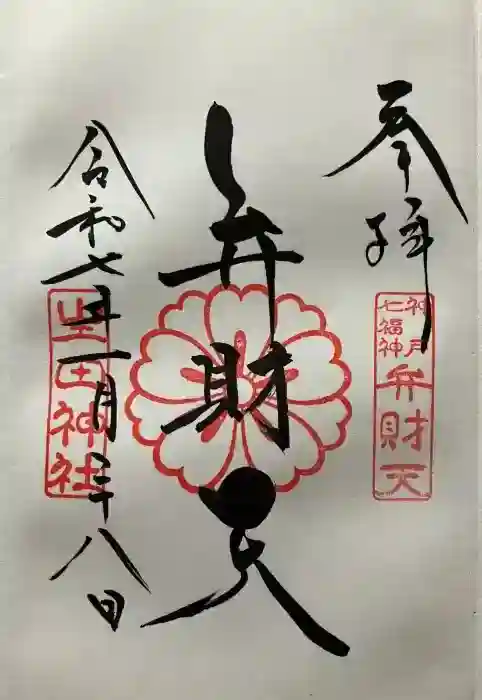 参拝
神戸
七福神
弁財天
弁財天
令和七年一月二十八日
生田神社